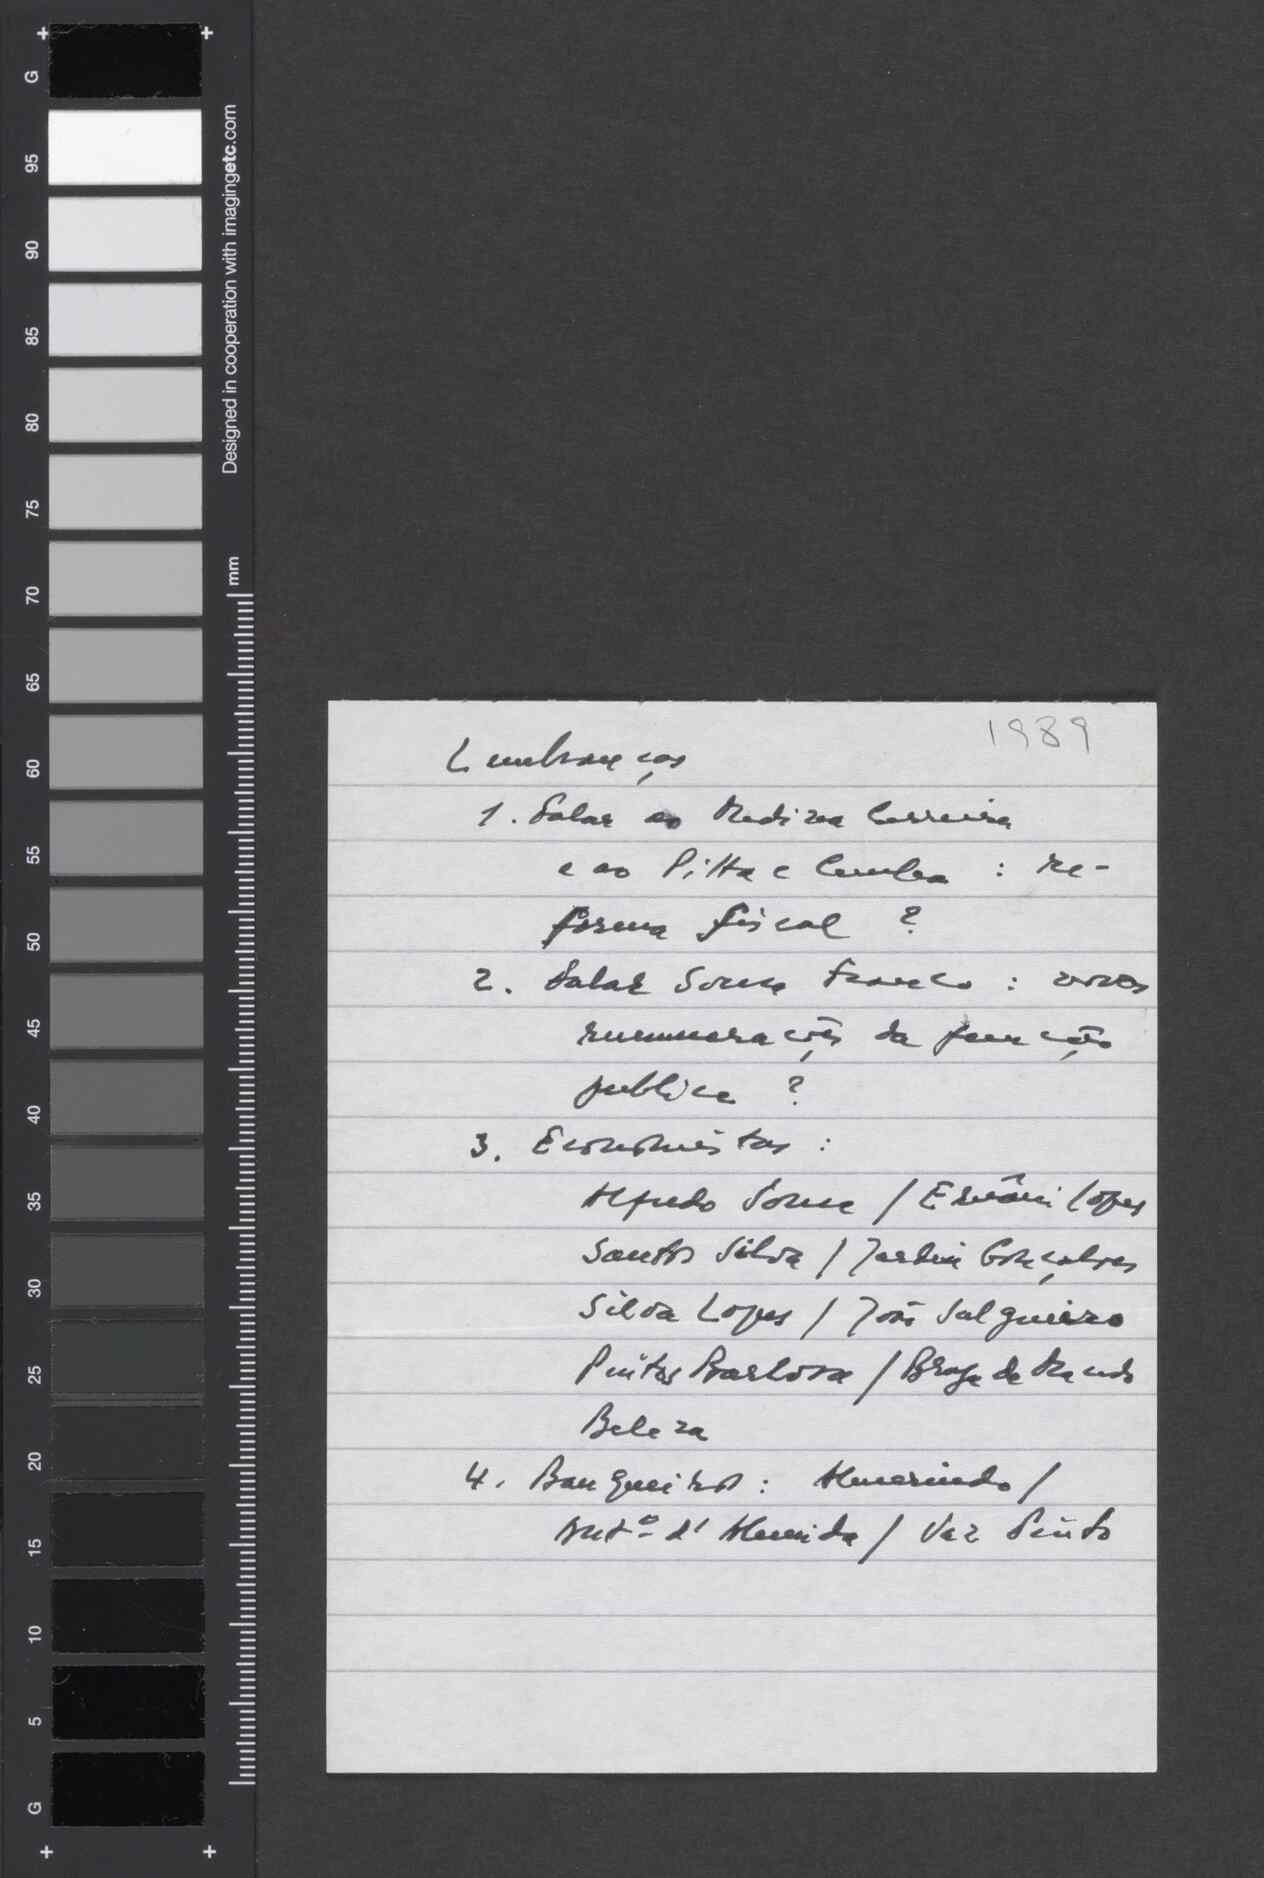 G
95
90
85
80
75
70
65
60
55
50
45
40
35
30
25
20
15
10
5
G
Designed in cooperation with imagingetc.com
mm
1989
Lembranças
1. Falar ao Medina Carreira
e ao Pitta e Cunha : re-
forma fiscal ?
2. Falar Sousa Franco : novas
remunerações da função
publica ?
3. Economistas :
Alfredo Sousa / Ernâni Lopes
Santos Silva / Jardim Gonçalves
Silva Lopes / João Salgueiro
Pinto Barbosa / Braga de Macedo
Beleza
4. Banqueiros : Almerindo /
Antº d'Almeida / Vaz Pinto